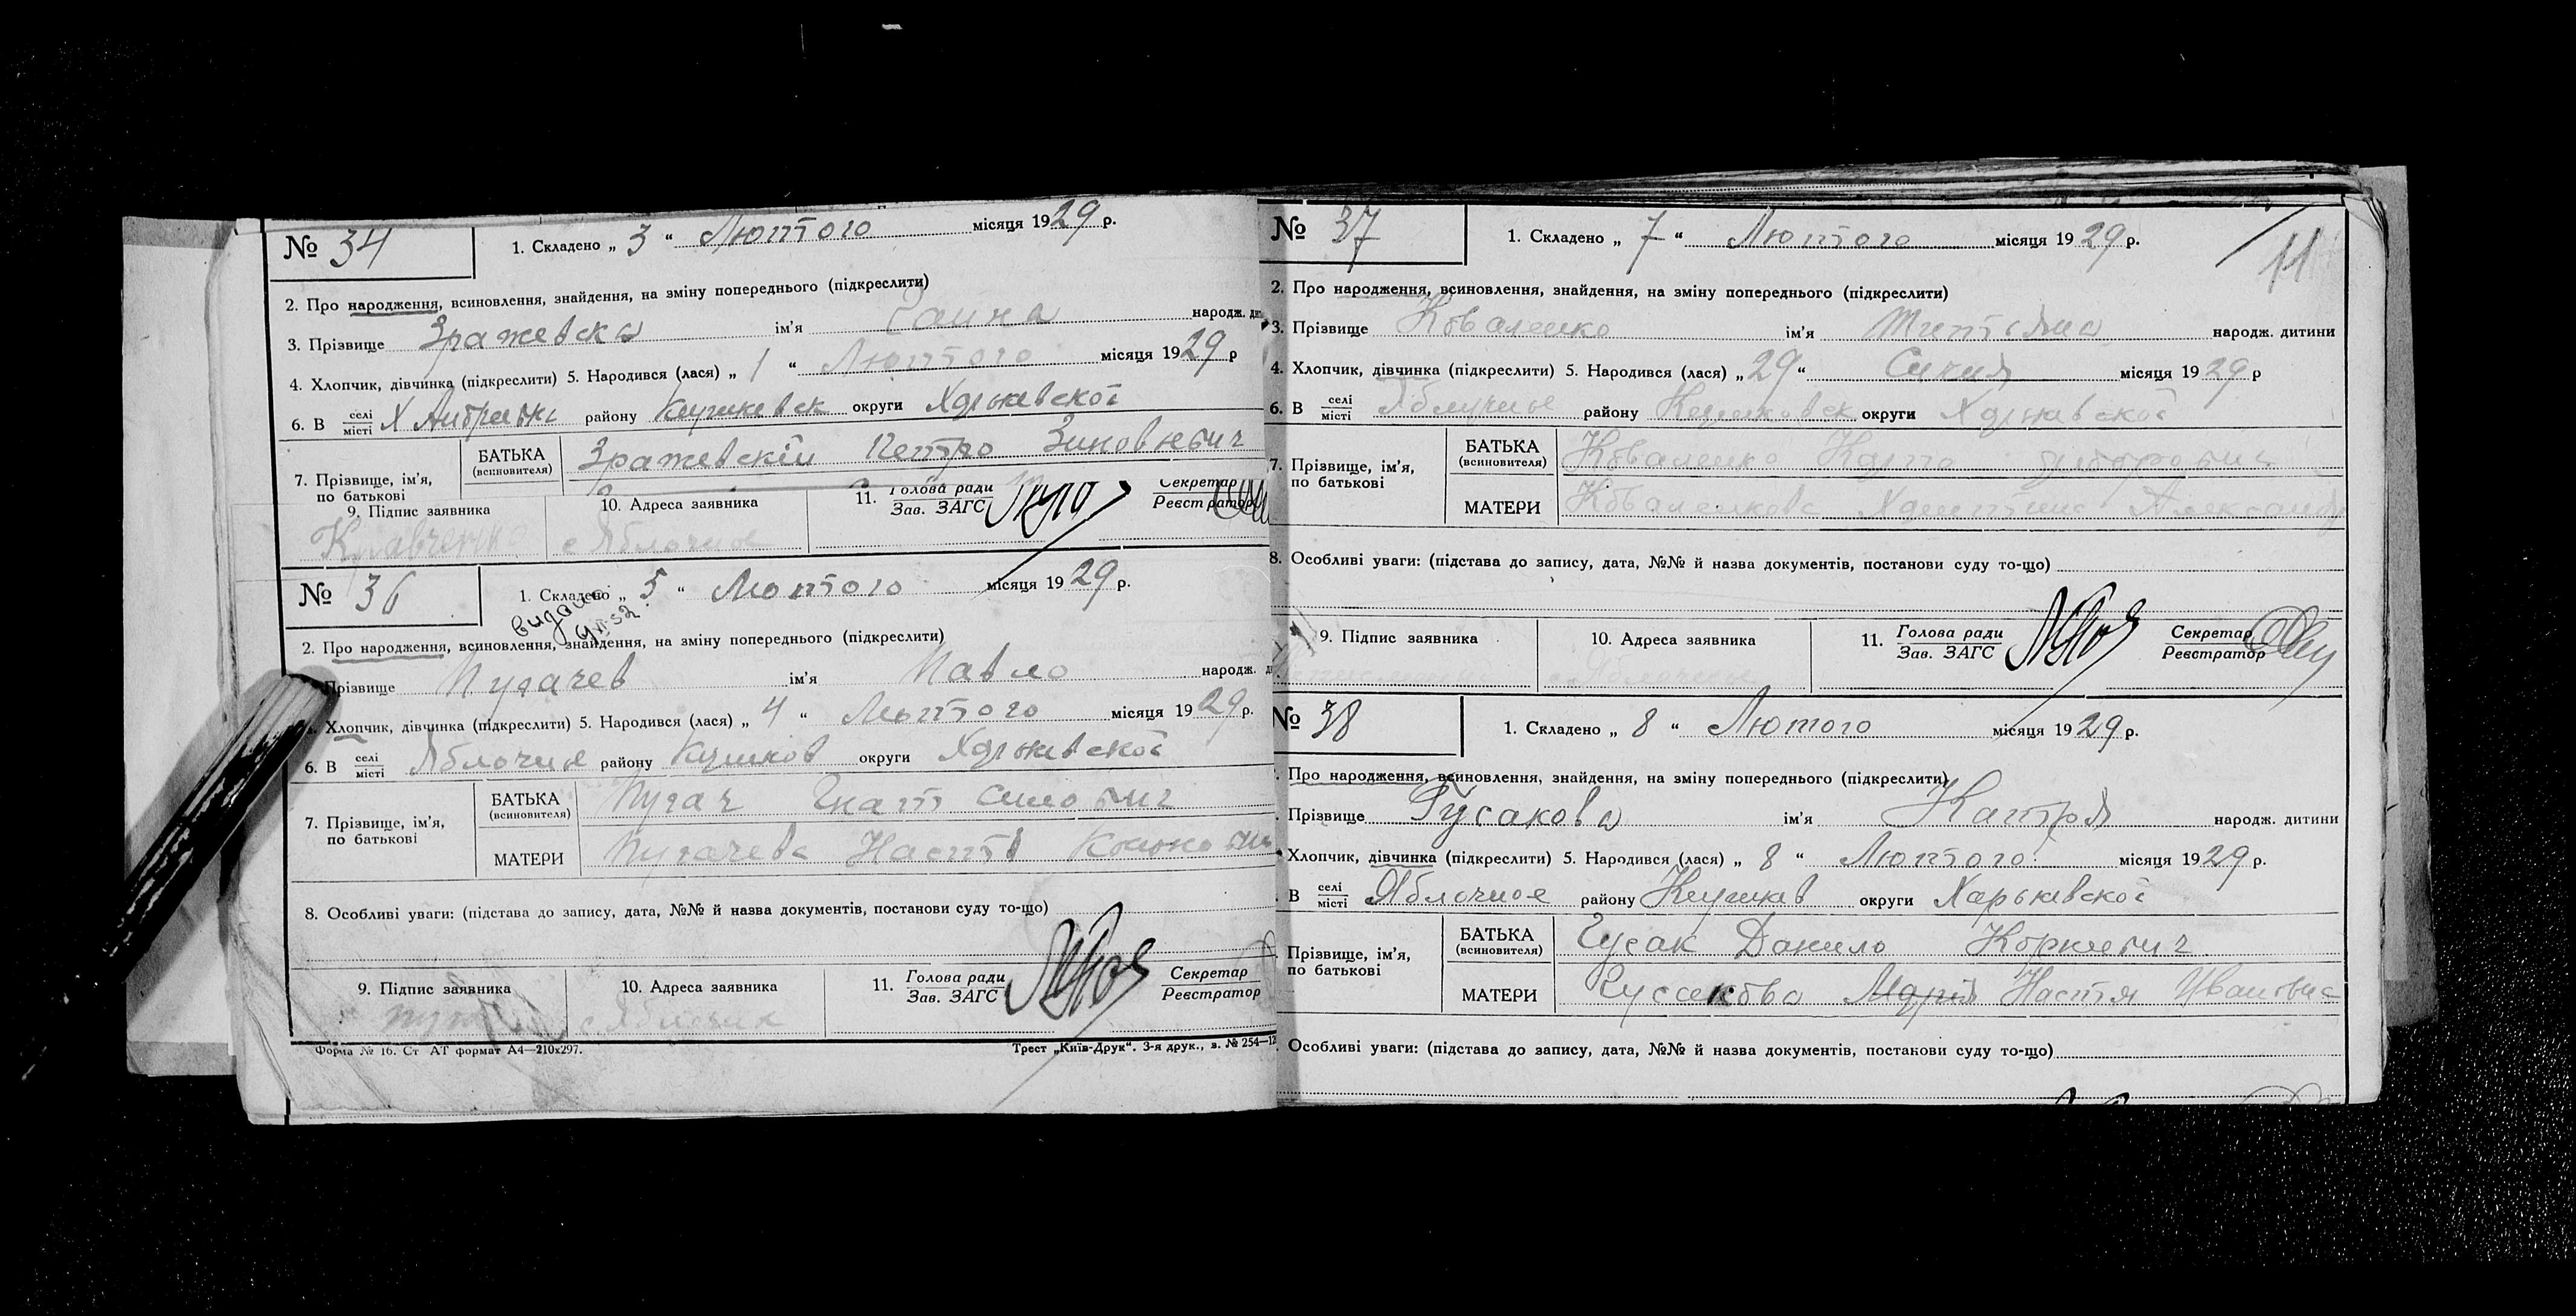 № 34
1. Складено „ 3 “ Лютого місяця 1929 р.
2. Про народження, всиновлення, знайдення, на зміну попереднього (підкреслити)
3. Прізвище Зражевска ім'я Ганна народж.
4. Хлопчик, дівчинка (підкреслити) 5. Народився (лася) „ 1 “ Лютого місяця 1929 р
6. В селі місті Х району округи Харьківскої
7. Прізвище, ім'я, по батькові БАТЬКА (всиновителя) Зражевскій Петро Зиновиевич
9. Підпис заявника 10. Адреса заявника 11. Голова ради Зав. ЗАГС Секретар Реєстратор
Кравченко с Яблочное
№ 36
1. Складено „ 5 “ Лютого місяця 1929 р.
видано
2. Про народження, всиновлення, знайдення, на зміну попереднього (підкреслити)
Прізвище Пугачев ім'я Павло народж.
Хлопчик, дівчинка (підкреслити) 5. Народився (лася) „ 4 “ Лютого місяця 1929 р.
6. В селі місті Яблочне району округи Харьківскої
7. Прізвище, ім'я, по батькові БАТЬКА (всиновителя) Пугач Гнат
МАТЕРИ Пугачева Настя
8. Особливі уваги: (підстава до запису, дата, №№ й назва документів, постанови суду то-що)
9. Підпис заявника 10. Адреса заявника 11. Голова ради Зав. ЗАГС Секретар Реєстратор
Форма № 16. Ст АТ формат А4—210х297. Трест „Київ-Друк“. 3-я друк., в. № 254—12
№ 37
1. Складено „ 7 “ Лютого місяця 1929 р.
11
2. Про народження, всиновлення, знайдення, на зміну попереднього (підкреслити)
3. Прізвище Коваленко ім'я народж. дитини
4. Хлопчик, дівчинка (підкреслити) 5. Народився (лася) „ 29 “ Сичня місяця 1929 р
6. В селі місті району округи Харькивской
7. Прізвище, ім'я, по батькові БАТЬКА (всиновителя) Коваленко Карпо
МАТЕРИ Коваленкова
8. Особливі уваги: (підстава до запису, дата, №№ й назва документів, постанови суду то-що)
9. Підпис заявника 10. Адреса заявника 11. Голова ради Зав. ЗАГС Секретар Реєстратор
№ 38
1. Складено „ 8 “ Лютого місяця 1929 р.
Про народження, всиновлення, знайдення, на зміну попереднього (підкреслити)
Прізвище Гусакова ім'я Катря народж. дитини
Хлопчик, дівчинка (підкреслити) 5. Народився (лася) „ 8 “ Лютого місяця 1929 р.
В селі місті Яблочное району округи Харьківскої
Прізвище, ім'я, по батькові БАТЬКА (всиновителя) Гусак Данило Корниевич
МАТЕРИ Гусакова Марія Настя Ивановна
Особливі уваги: (підстава до запису, дата, №№ й назва документів, постанови суду то-що)